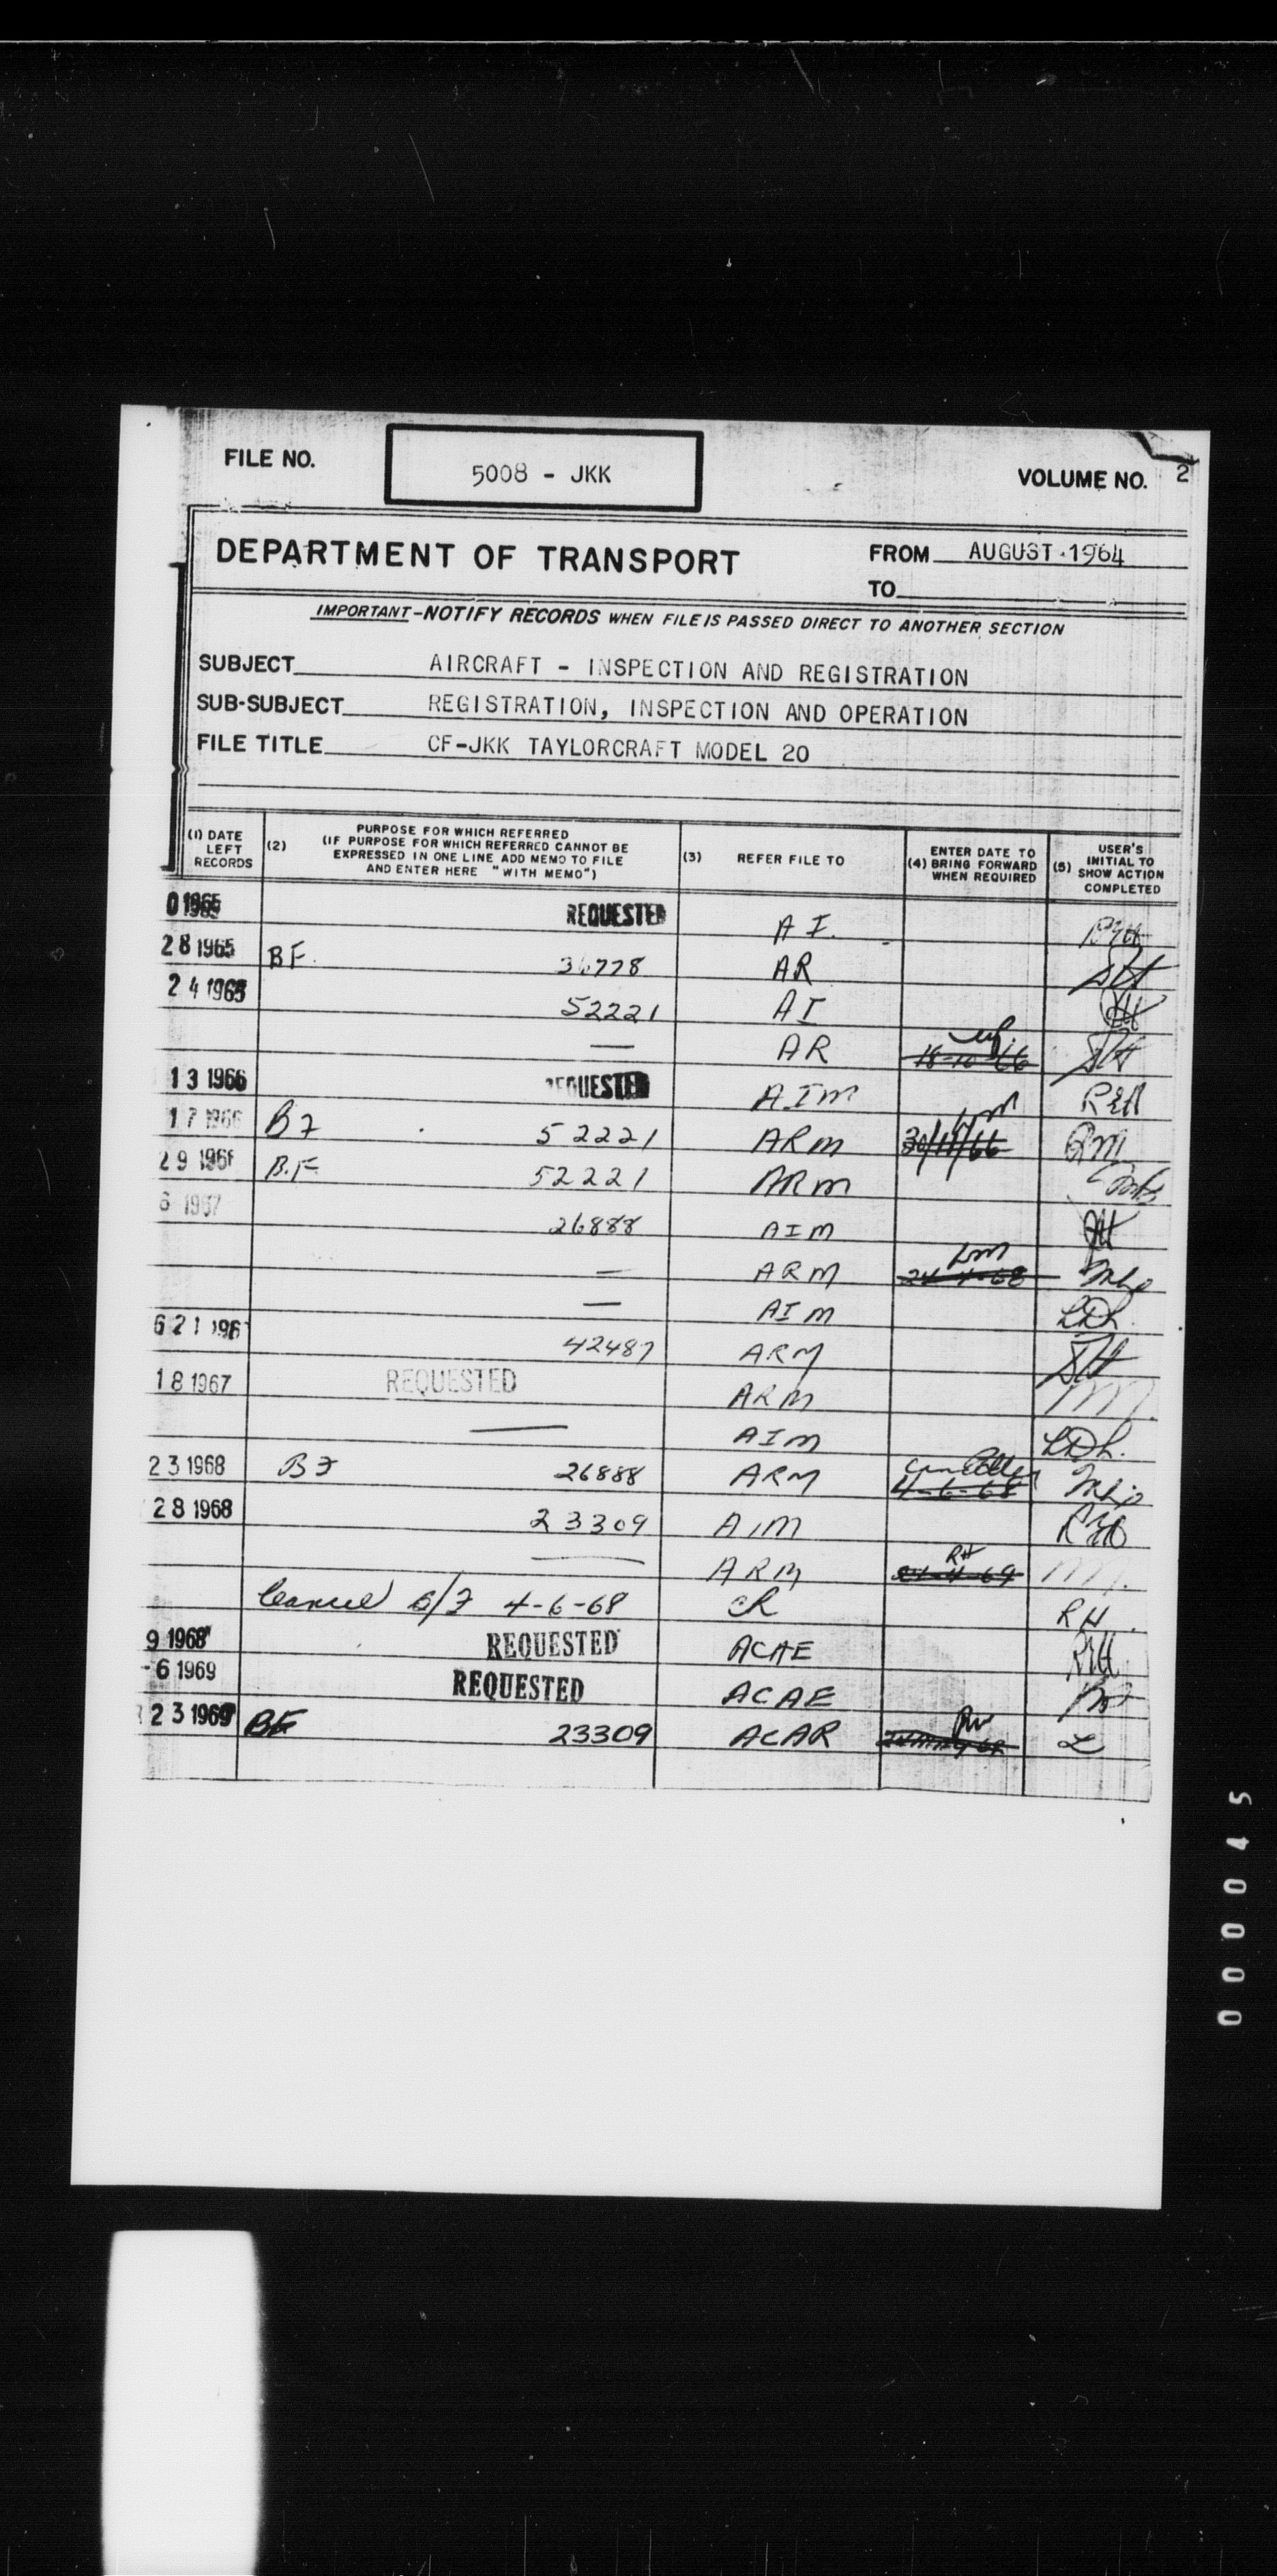 FILE NO. 5008 - JKK VOLUME NO. 2
DEPARTMENT OF TRANSPORT FROM AUGUST 1964
TO
IMPORTANT-NOTIFY RECORDS WHEN FILE IS PASSED DIRECT TO ANOTHER SECTION
SUBJECT AIRCRAFT - INSPECTION AND REGISTRATION
SUB-SUBJECT REGISTRATION, INSPECTION AND OPERATION
FILE TITLE CF-JKK TAYLORCRAFT MODEL 20
(1) DATE LEFT RECORDS
(2) PURPOSE FOR WHICH REFERRED
(IF PURPOSE FOR WHICH REFERRED CANNOT BE
EXPRESSED IN ONE LINE ADD MEMO TO FILE
AND ENTER HERE "WITH MEMO")
(3) REFER FILE TO
ENTER DATE TO
(4) BRING FORWARD
WHEN REQUIRED
USER'S
INITIAL TO
(5) SHOW ACTION
COMPLETED
0 1965 REQUESTED A I.
28 1965 BF. AR
24 1965 52221 AI
— AR 18-10-66
13 1966 REQUESTED AIM REH
17 1966 BF 52221 ARM 30/11/66 RM
29 1966 B.F. 52221 ARM
6 1967 26888 AIM
— ARM
— AIM LDL.
6 21 196 42487 ARM
18 1967 REQUESTED ARM
— AIM LDL.
23 1968 BF 26888 ARM cancelled 4-6-68
28 1968 23309 AIM
— ARM RH
Cancel B/F 4-6-68 CR RH.
9 1968 REQUESTED ACAE
-6 1969 REQUESTED ACAE
23 1969 BF 23309 ACAR
000045